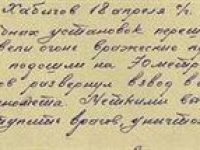 Хабигов 18 апреля с/г.
дных установок переш
вели огонь вражеские п
подошли на 70 метр
ов развернул взвод в
номета. Меткими вы
тупить врагов, уничтож